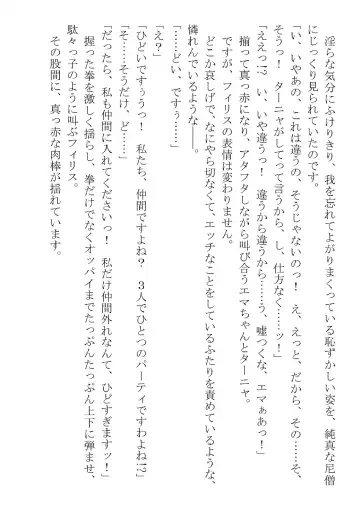 淫らな気分にふけりきり、我を忘れてよがりまくっている恥ずかしい姿を、純真な尼僧
にじっくり見られていたのです。
「い、いやあの、これは違うの、そうじゃないのっ！　え、えっと、だから、その……そ、
そうっ！　ターニャがしてって言うから、し、仕方なく……ッ！」
「ええっ!?　い、いや違うっ！　違うから違うから……う、嘘つくな、エマぁあっ！」
揃って真っ赤になり、アタフタしながら叫び合うエマちゃんとターニャ。
ですが、フィリスの表情は変わりません。
どこか哀しげで、なにやら切なくて、エッチなことをしているふたりを責めているような、
憐れんでいるような――。
「……どい、ですぅ……」
「え？」
「ひどいですぅうっ！　私たち、仲間ですよね？　３人でひとつのパーティですわよね!?」
「そ……そうだけど、ど……」
「だったら、私も仲間に入れてくださいっ！　私だけ仲間外れなんて、ひどすぎますッ！」
握った拳を激しく揺らし、拳だけでなくオッパイまでたっぷんたっぷん上下に弾ませ、
駄々っ子のように叫ぶフィリス。
その股間に、真っ赤な肉棒が揺れています。